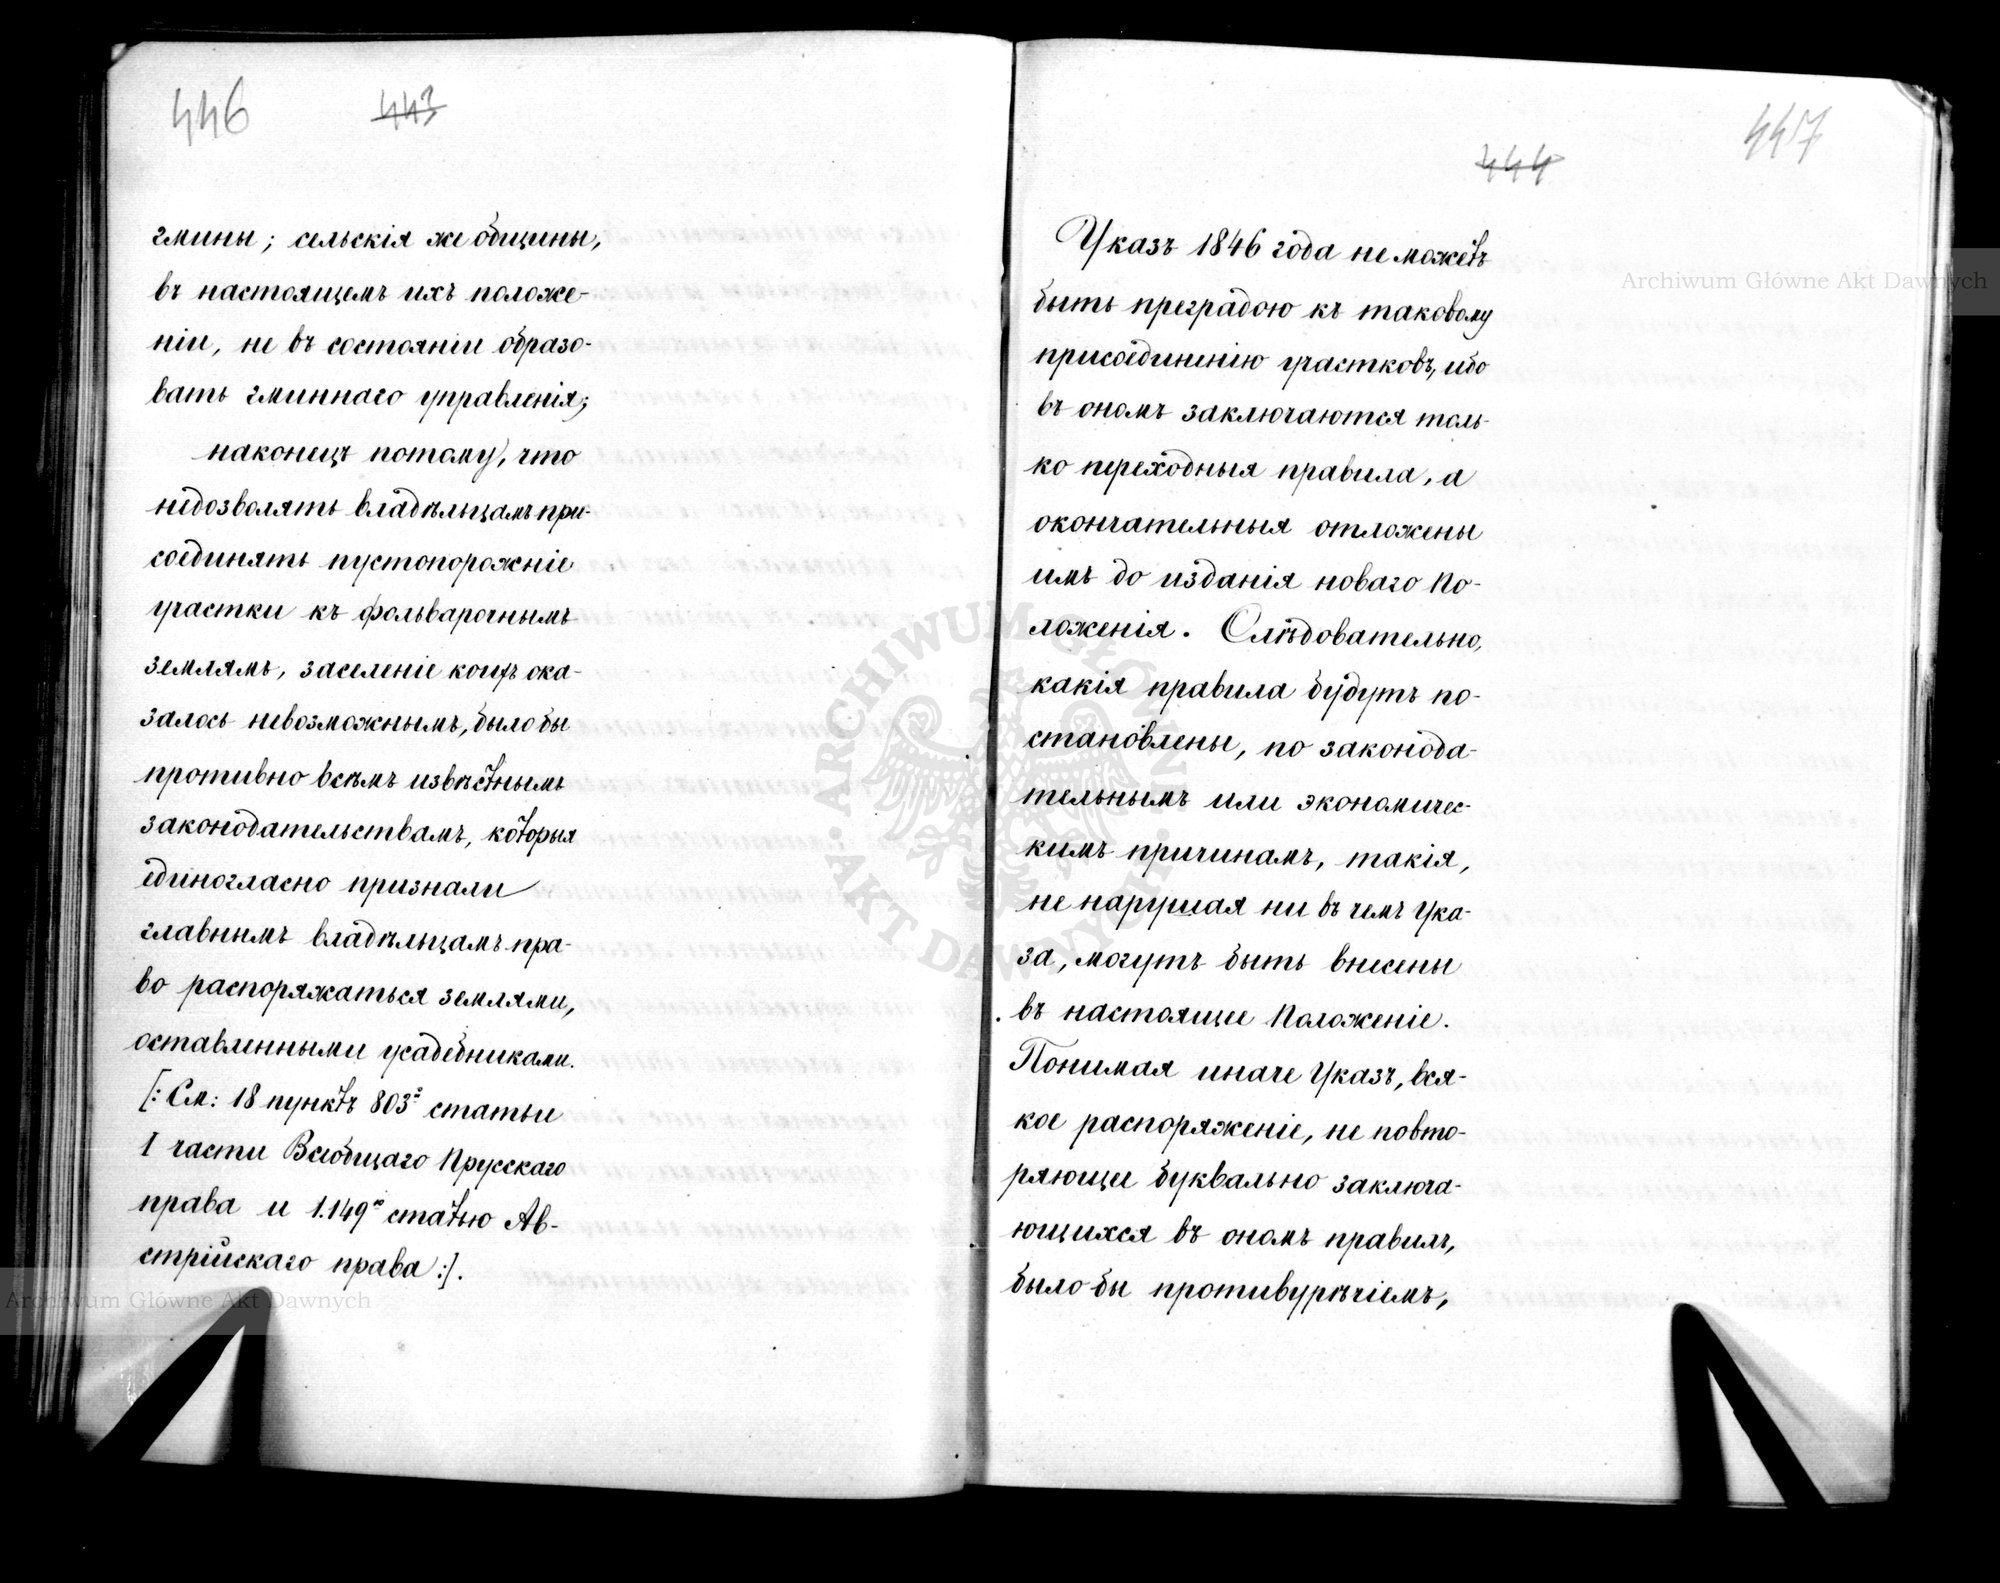 446 443
гмины; сельскія же общины,
въ настоящемъ ихъ положе-
ніи, не въ состояніи образо-
вать гминнаго управленія;
наконецъ потому, что
недозволять владѣльцамъ при-
соединять пустопорожніе
участки къ фольварочнымъ
землямъ, заселеніе коихъ ока-
залось невозможнымъ, было бы
противно всѣмъ извѣстнымъ
законодательствамъ, которыя
единогласно признали
главнымъ владѣльцамъ пра-
во распоряжаться землями,
оставленными усадебниками.
[: См: 18 пунктъ 803й статьи
I части Всеобщаго Прусскаго
права и 1.149ю статью Ав-
стрійскаго права :].
447
444
Указъ 1846 года не можетъ
быть преградою къ таковому
присоединенію участковъ, ибо
въ ономъ заключаются толь-
ко переходныя правила, а
окончательныя отложены
имъ до изданія новаго По-
ложенія. Слѣдовательно,
какія правила будутъ по-
становлены, по законода-
тельнымъ или экономичес-
кимъ причинамъ, такія,
не нарушая ни въ чемъ Ука-
за, могутъ быть внесены
въ настоящее Положеніе.
Понимая иначе Указъ, вся-
кое распоряженіе, не повто-
ряющее буквально заключа-
ющихся въ ономъ правилъ,
было бы противурѣчіемъ,
Archiwum Główne Akt Dawnych
Archiwum Główne Akt Dawnych
ARCHIWUM GŁÓWNE AKT DAWNYCH